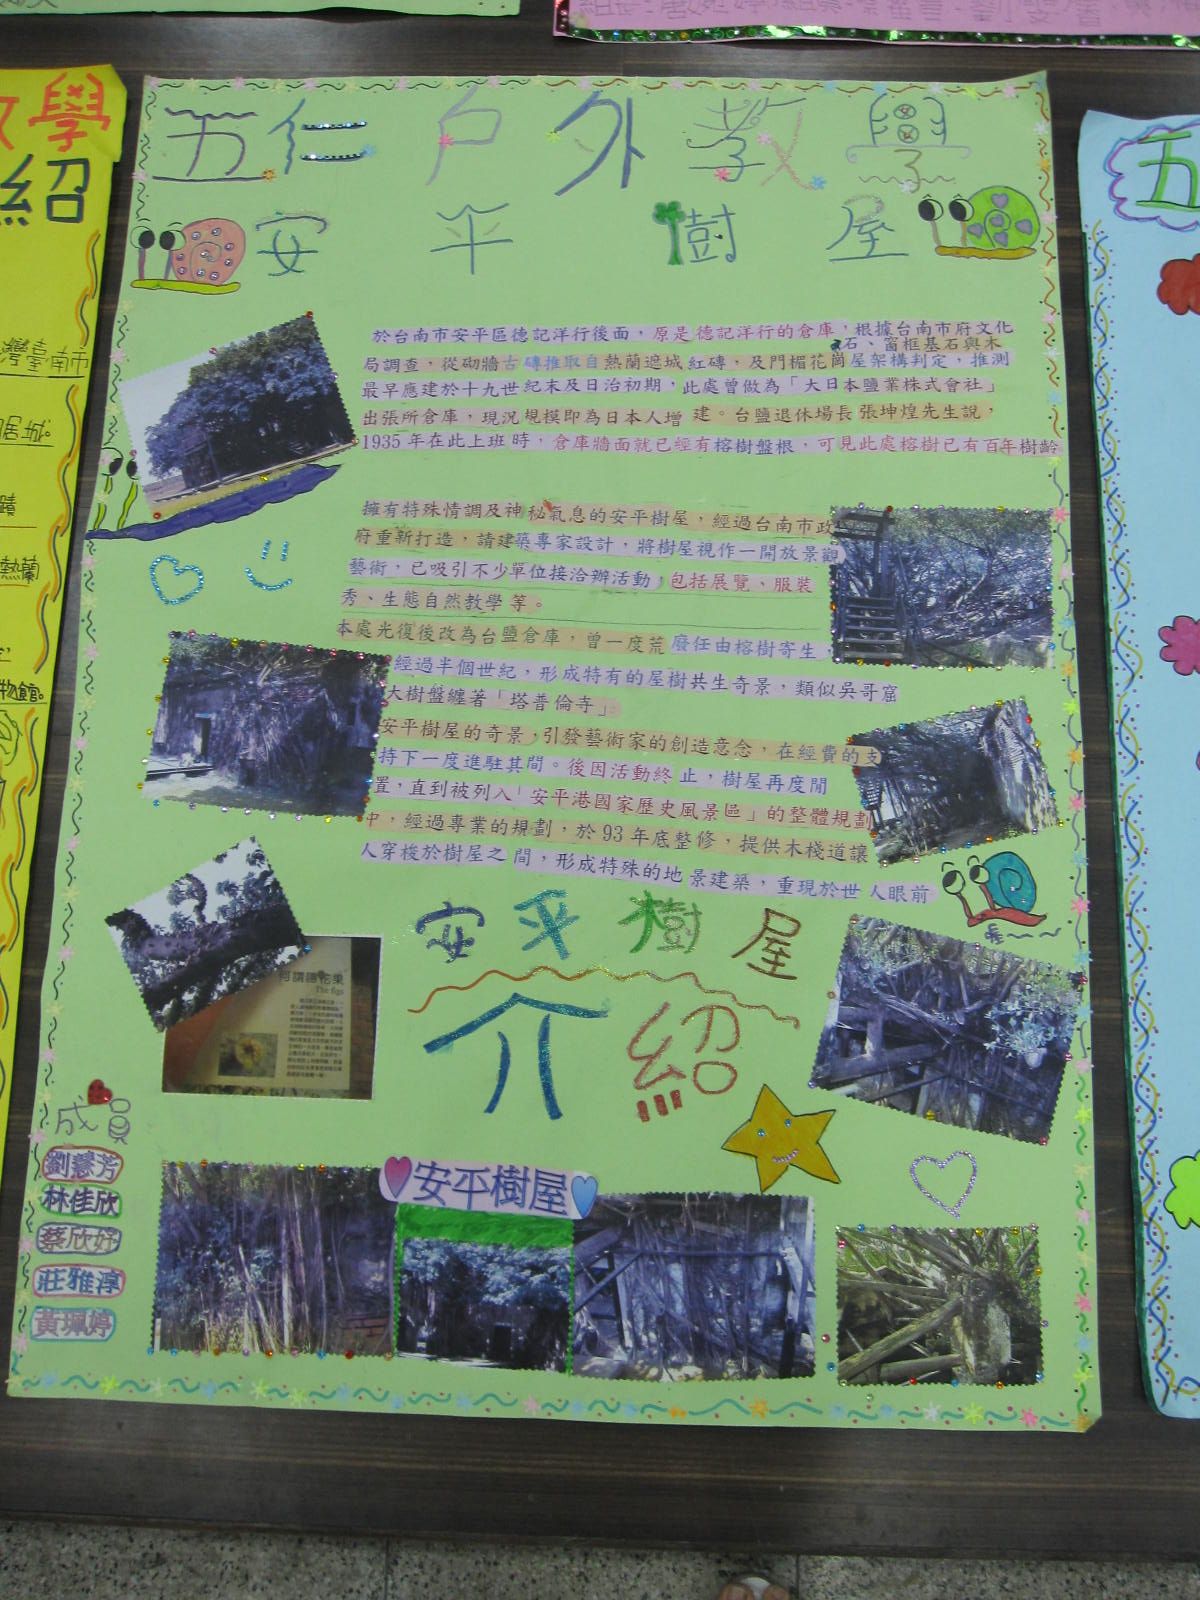 五仁戶外教學
安平樹屋
於台南市安平區德記洋行後面，原是德記洋行的倉庫，根據台南市府文化
局調查，從砌牆古磚推取自熱蘭遮城紅磚，及門楣花崗石、窗框基石與木屋架構判定，推測
最早應建於十九世紀末及日治初期，此處曾做為「大日本鹽業株式會社」
出張所倉庫，現況規模即為日本人增建。台鹽退休場長張坤煌先生說，
1935年在此上班時，倉庫牆面就已經有榕樹盤根，可見此處榕樹已有百年樹齡
擁有特殊情調及神秘氣息的安平樹屋，經過台南市政
府重新打造，請建築專家設計，將樹屋視作一開放景觀
藝術，已吸引不少單位接洽辦活動，包括展覽、服裝
秀、生態自然教學等。
本處光復後改為台鹽倉庫，曾一度荒廢任由榕樹寄生，
經過半個世紀，形成特有的屋樹共生奇景，類似吳哥窟
大樹盤纏著「塔普倫寺」。
安平樹屋的奇景，引發藝術家的創造意念，在經費的支
持下一度進駐其間。後因活動終止，樹屋再度閒
置，直到被列入「安平港國家歷史風景區」的整體規劃
中，經過專業的規劃，於93年底整修，提供木棧道讓
人穿梭於樹屋之間，形成特殊的地景建築，重現於世人眼前
安平樹屋
介紹
何謂隱花果
The figs
成員
劉慧芳
林佳欣
蔡欣妤
莊雅淳
黃珮婷
安平樹屋
學
紹
灣臺南市
居城。
蹟
熱蘭
物館。
五